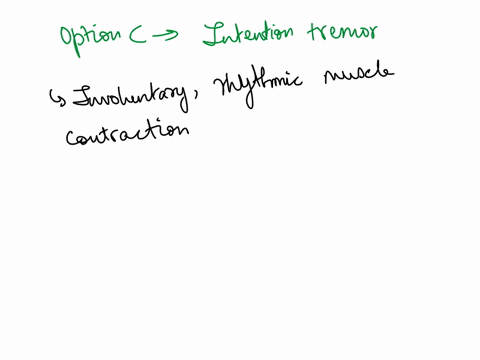 Option C → Intention tremor
↳ Involuntary, rhythmic muscle
contraction